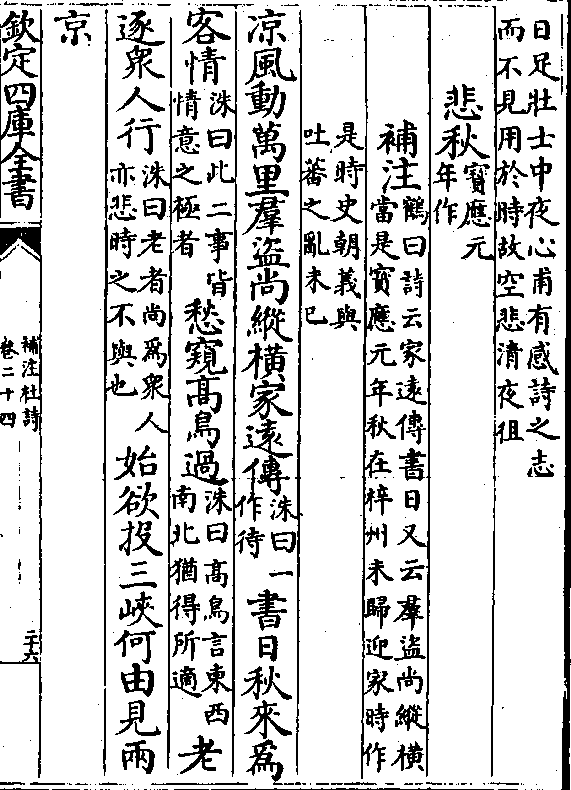 日足壯士中夜心甫有感詩之志
而不見用於時故空悲清夜徂
悲秋寶應元
年作
補注鶴曰詩云家逺傳書日又云羣盗尚縱横
當是寶應元年秋在梓州未歸迎家時作
是時史朝義與
吐蕃之亂未已
凉風動萬里羣盗尚縱横家逺傳洙曰一
作待書日秋來爲
客情洙曰此二事皆
情意之極者愁窺髙鳥過洙曰髙鳥言東西
南北猶得所適老
逐衆人行洙曰老者尚爲衆人
亦悲時之不與也始欲投三峽何由見兩
京
欽定四庫全書
補注杜詩
卷二十四
二十六